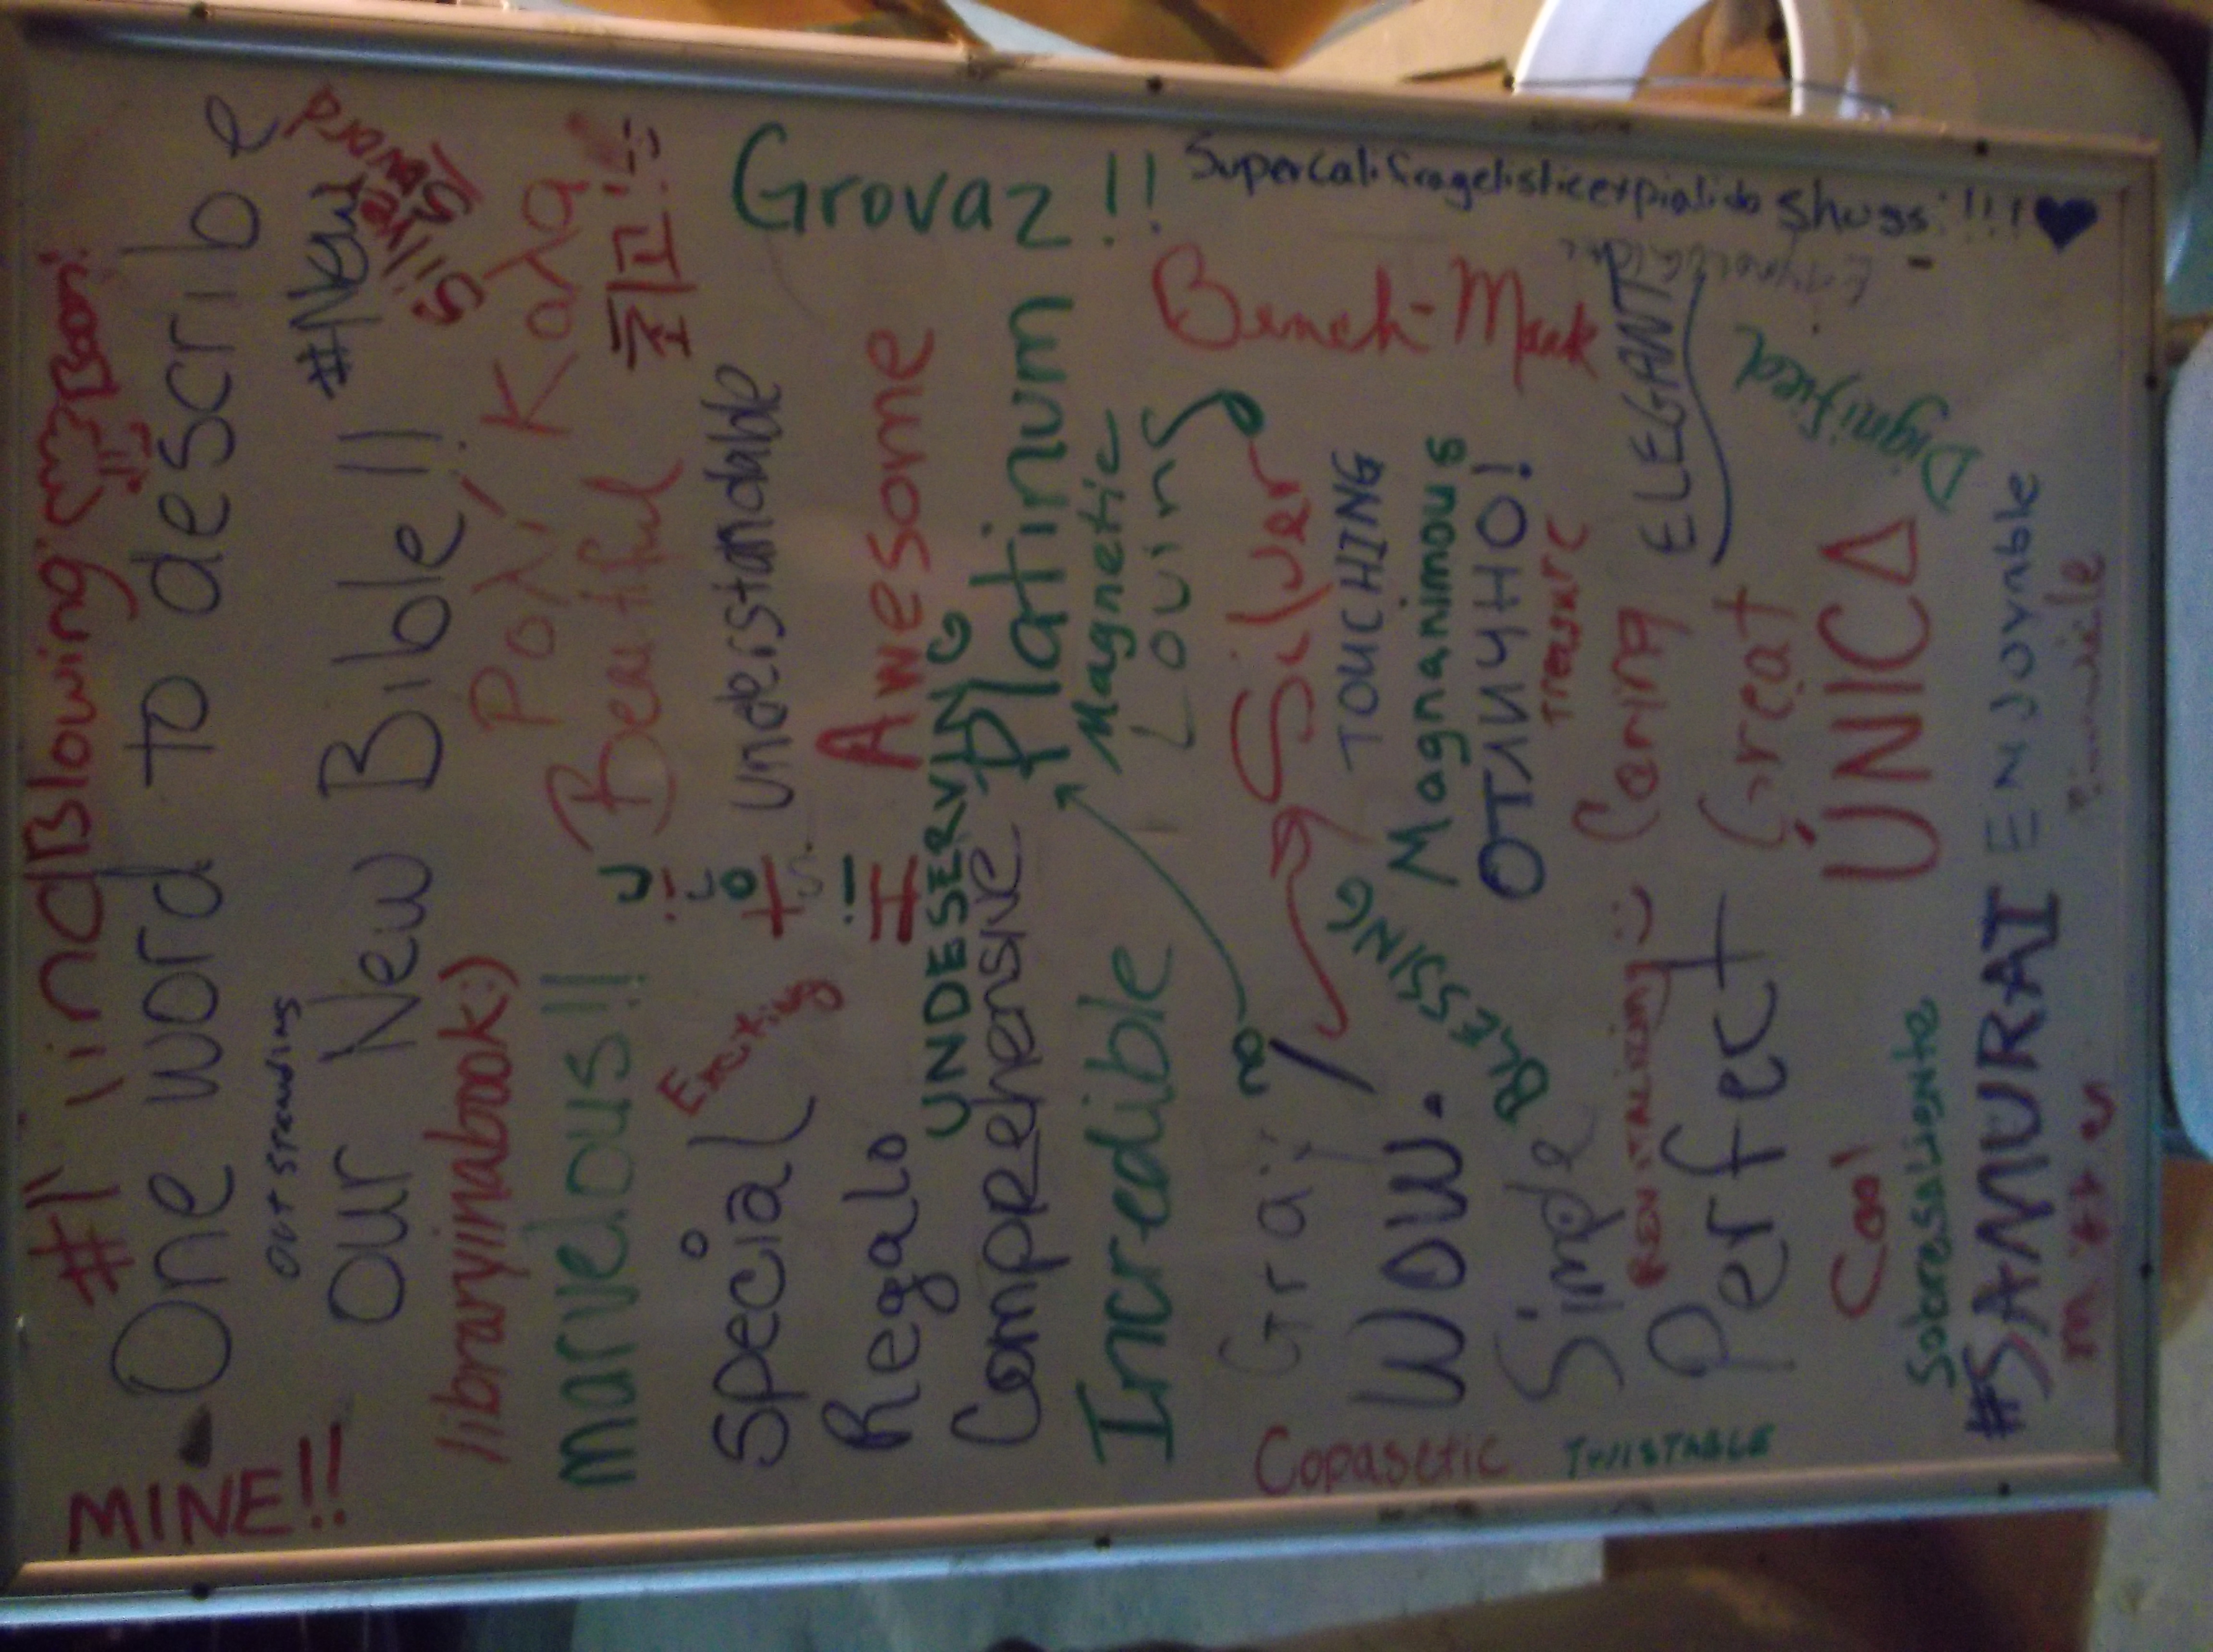 #1 MindBlowing
MINE!!
One word to describe
our New Bible!!
outstanding
#New
Silver
Sword
libraryinabook:)
marvelous!!!
Beautiful
최고!!
Special
Exciting
understandable
Grovaz!!
Regalo
Awesome
UNDESERVING
Comprehensive
Platinum
Incredible
Magnetic
Loving
Supercalifragelisticexpialidoshugs!!!!♥
Bench-Mark
Gray
Silver
TOUCHING
WOW.
BLESSING
Magnanimous
ОТЛИЧНО!
Treasure
Copasetic
TWISTABLE
REVITALIZING :)
Caring
ELEGANT
Perfect
Great
Dignified
Cool
ÚNICA
Sobresaliente
#SAMURAI
ENJOYABLE